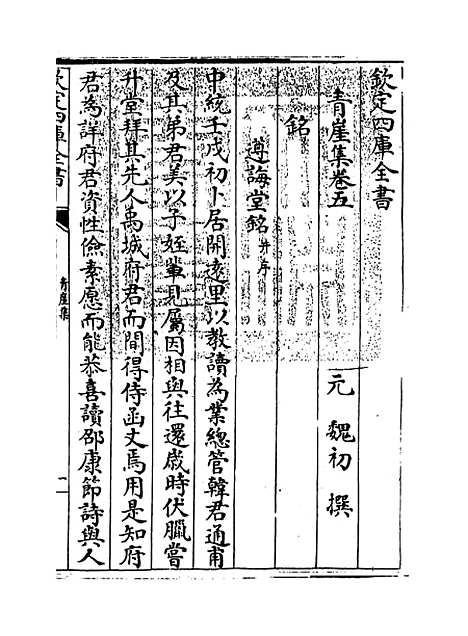 欽定四庫全書
青崖集卷五
元 魏初 撰
銘
遵誨堂銘并序
中統壬戌初卜居開遠里以教讀為業總管韓君通甫
及其弟君美以子姪輩見屬因相與往還歲時伏臘嘗
升堂拜其先人禹城府君而間得侍函丈焉用是知府
君為詳府君資性儉素愿而能恭喜讀邵康節詩與人
欽定四庫全書
青崖集
一